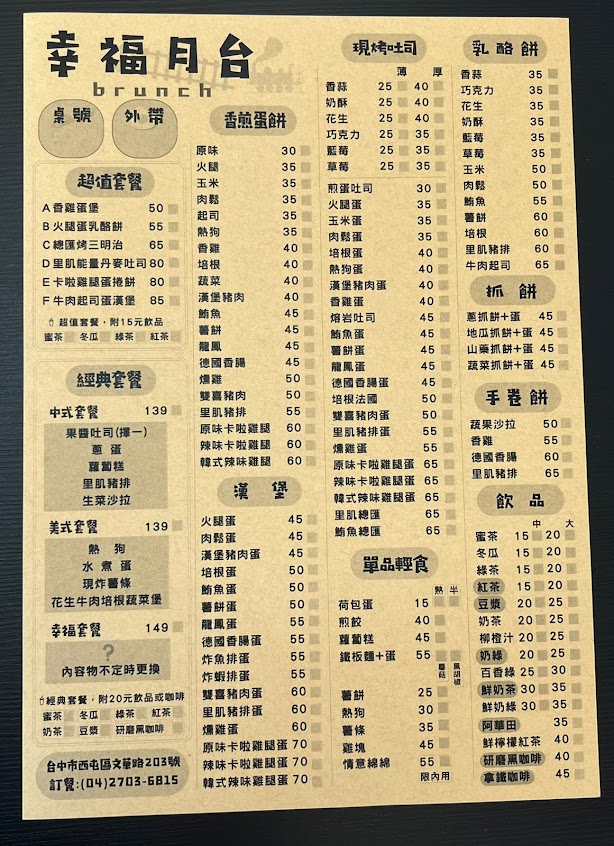 幸福月台
brunch
桌號 外帶
超值套餐
A香雞蛋堡 50
B火腿蛋乳酪餅 55
C總匯烤三明治 65
D里肌能量丹麥吐司 80
E卡啦雞腿蛋捲餅 80
F牛肉起司蛋漢堡 85
超值套餐，附15元飲品
蜜茶 冬瓜 綠茶 紅茶
經典套餐
中式套餐 139
果醬吐司(擇一)
蔥蛋
蘿蔔糕
里肌豬排
生菜沙拉
美式套餐 139
熱狗
水煮蛋
現炸薯條
花生牛肉培根蔬菜堡
幸福套餐 149
?
內容物不定時更換
經典套餐，附20元飲品或咖啡
蜜茶 冬瓜 綠茶 紅茶
奶茶 豆漿 研磨黑咖啡
台中市西屯區文華路203號
訂餐:(04)2703-6815
香煎蛋餅
原味 30
火腿 35
玉米 35
肉鬆 35
起司 35
熱狗 35
香雞 40
培根 40
蔬菜 40
漢堡豬肉 40
鮪魚 45
薯餅 45
龍鳳 45
德國香腸 45
燻雞 50
雙喜豬肉 50
里肌豬排 55
原味卡啦雞腿 60
辣味卡啦雞腿 60
韓式辣味雞腿 60
漢堡
火腿蛋 45
肉鬆蛋 45
漢堡豬肉蛋 45
培根蛋 50
鮪魚蛋 50
薯餅蛋 50
龍鳳蛋 55
德國香蛋 55
炸魚排蛋 55
炸蝦排蛋 55
雙喜豬肉蛋 60
里肌豬排蛋 60
燻雞蛋 60
原味卡啦雞腿蛋 70
辣味卡啦雞腿蛋 70
韓式辣味雞腿蛋 70
現烤吐司
薄 厚
香蒜 25 40
奶酥 25 40
花生 25 40
巧克力 25 35
藍莓 25 35
草莓 25 35
煎蛋吐司 30
火腿蛋 35
玉米蛋 35
肉鬆蛋 35
培根蛋 40
熱狗蛋 40
漢堡豬肉蛋 40
香雞蛋 40
熔岩吐司 45
鮪魚蛋 45
薯餅蛋 45
龍鳳蛋 45
德國香腸蛋 45
培根法國 50
雙喜豬肉蛋 50
里肌豬排蛋 55
燻雞蛋 55
原味卡啦雞腿蛋 65
辣味卡啦雞腿蛋 65
韓式辣味雞腿蛋 65
里肌總匯 65
鮪魚總匯 65
單品輕食
熟 半
荷包蛋 15
煎餃 40
蘿蔔糕 45
鐵板麵+蛋 55
蘑菇 黑胡椒
薯餅 25
熱狗 30
薯條 35
雞塊 45
情意綿綿 55
限內用
乳酪餅
香蒜 35
巧克力 35
花生 35
奶酥 35
藍莓 35
草莓 35
玉米 50
肉鬆 50
鮪魚 55
薯餅 60
培根 60
里肌豬排 60
牛肉起司 65
抓餅
蔥抓餅+蛋 45
地瓜抓餅+蛋 45
山藥抓餅+蛋 45
蔬菜抓餅+蛋 45
手卷餅
蔬果沙拉 50
香雞 55
德國香腸 60
里肌豬排 65
飲品
中 大
蜜茶 15 20
冬瓜 15 20
綠茶 15 20
紅茶 15 20
豆漿 20 25
奶茶 20 25
柳橙汁 20 25
奶綠 20 25
百香綠 25 30
鮮奶茶 30 35
鮮奶綠 30 35
阿華田 35
鮮檸檬紅茶 40
研磨黑咖啡 40
拿鐵咖啡 45